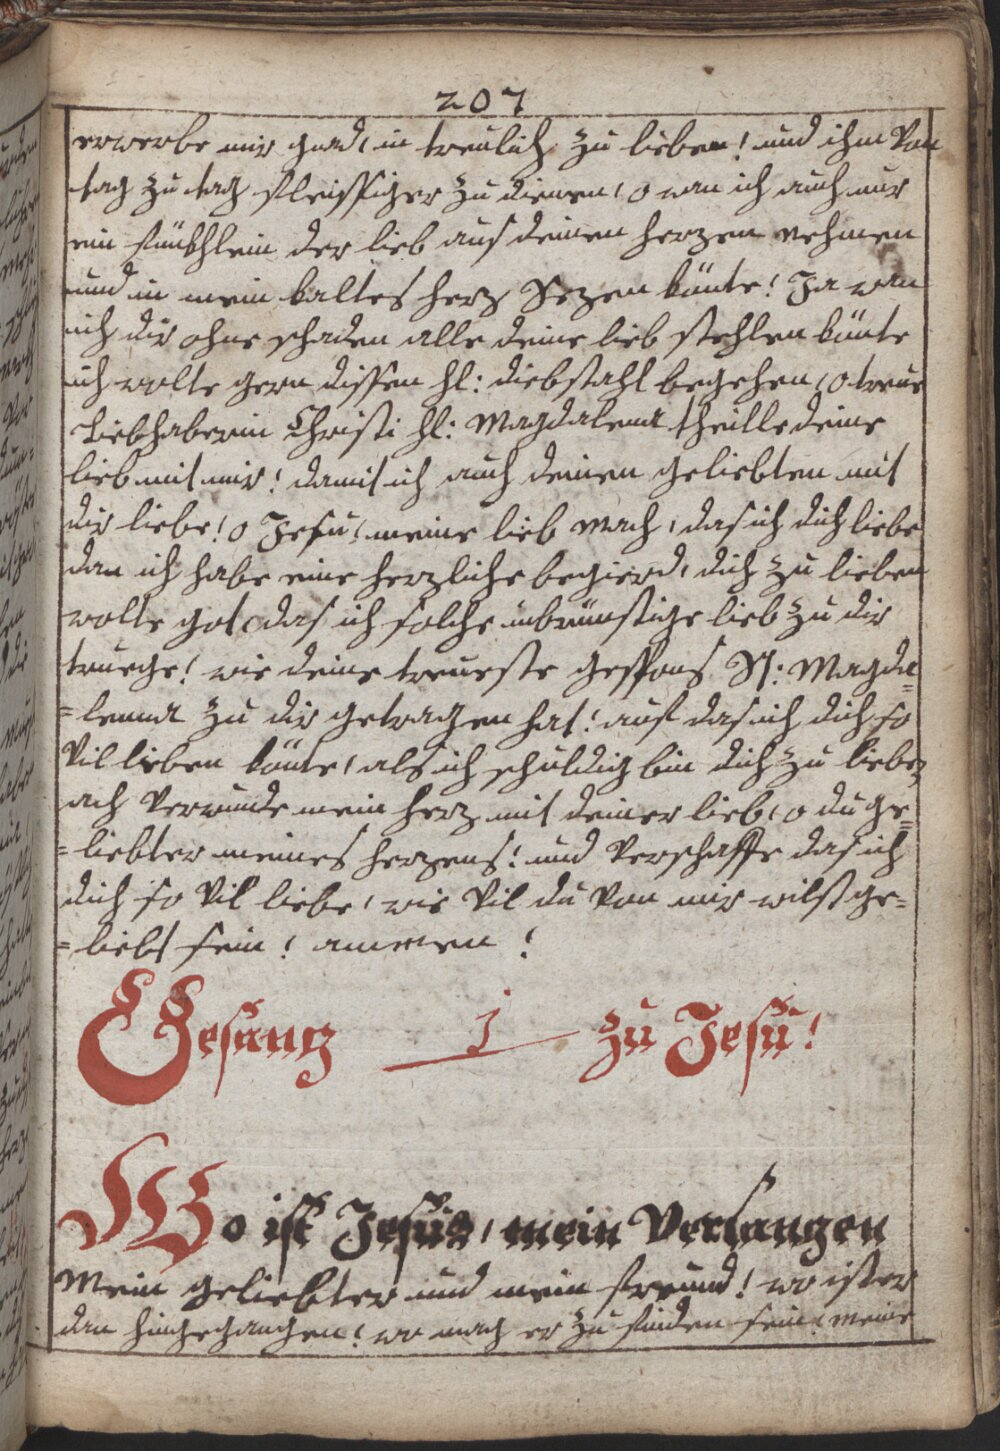 207
erwerbe mir gnad, in treulich zu lieben! und ihm von
tag zu tag fleissiger zu dienen, o wan ich auch nur
ein fünkhlein der lieb aus deinen herzen nehmen
und in mein kaltes herz sezen künte! Ja wan
ich dir ohne schaden alle deine lieb stehlen künte
ich wolte gern dissen hl: diebstahl begehen, o treue
Liebhaberin Christi hl: Magdalena theille deine
lieb mit mir! damit ich auch deinen geliebten mit
dir liebe! o Jesu, meine lieb mach, das ich dich liebe
dan ich habe eine herzliche begierd, dich zu lieben
wolte got, das ich solche inbrünstige lieb zu dir
truege! wie deine treueste gespons St: Magda=
=lenna zu dir getragen hat! auf das ich dich so
vil lieben künte, als ich schuldig bin dich zu lieben,
ach verwunde mein herz mit deiner lieb, o du ge=
=liebter meines herzens! und verschaffe das ich
dich so vil liebe, wie vil du von mir wilst ge=
=liebt sein! ammen!
Gesang 1 zu Jesu!
Wo ist Jesus, mein Verlangen
Mein geliebter und mein freund! wo ist er
dan hingegangen! wo mag er zu finden sein! meine